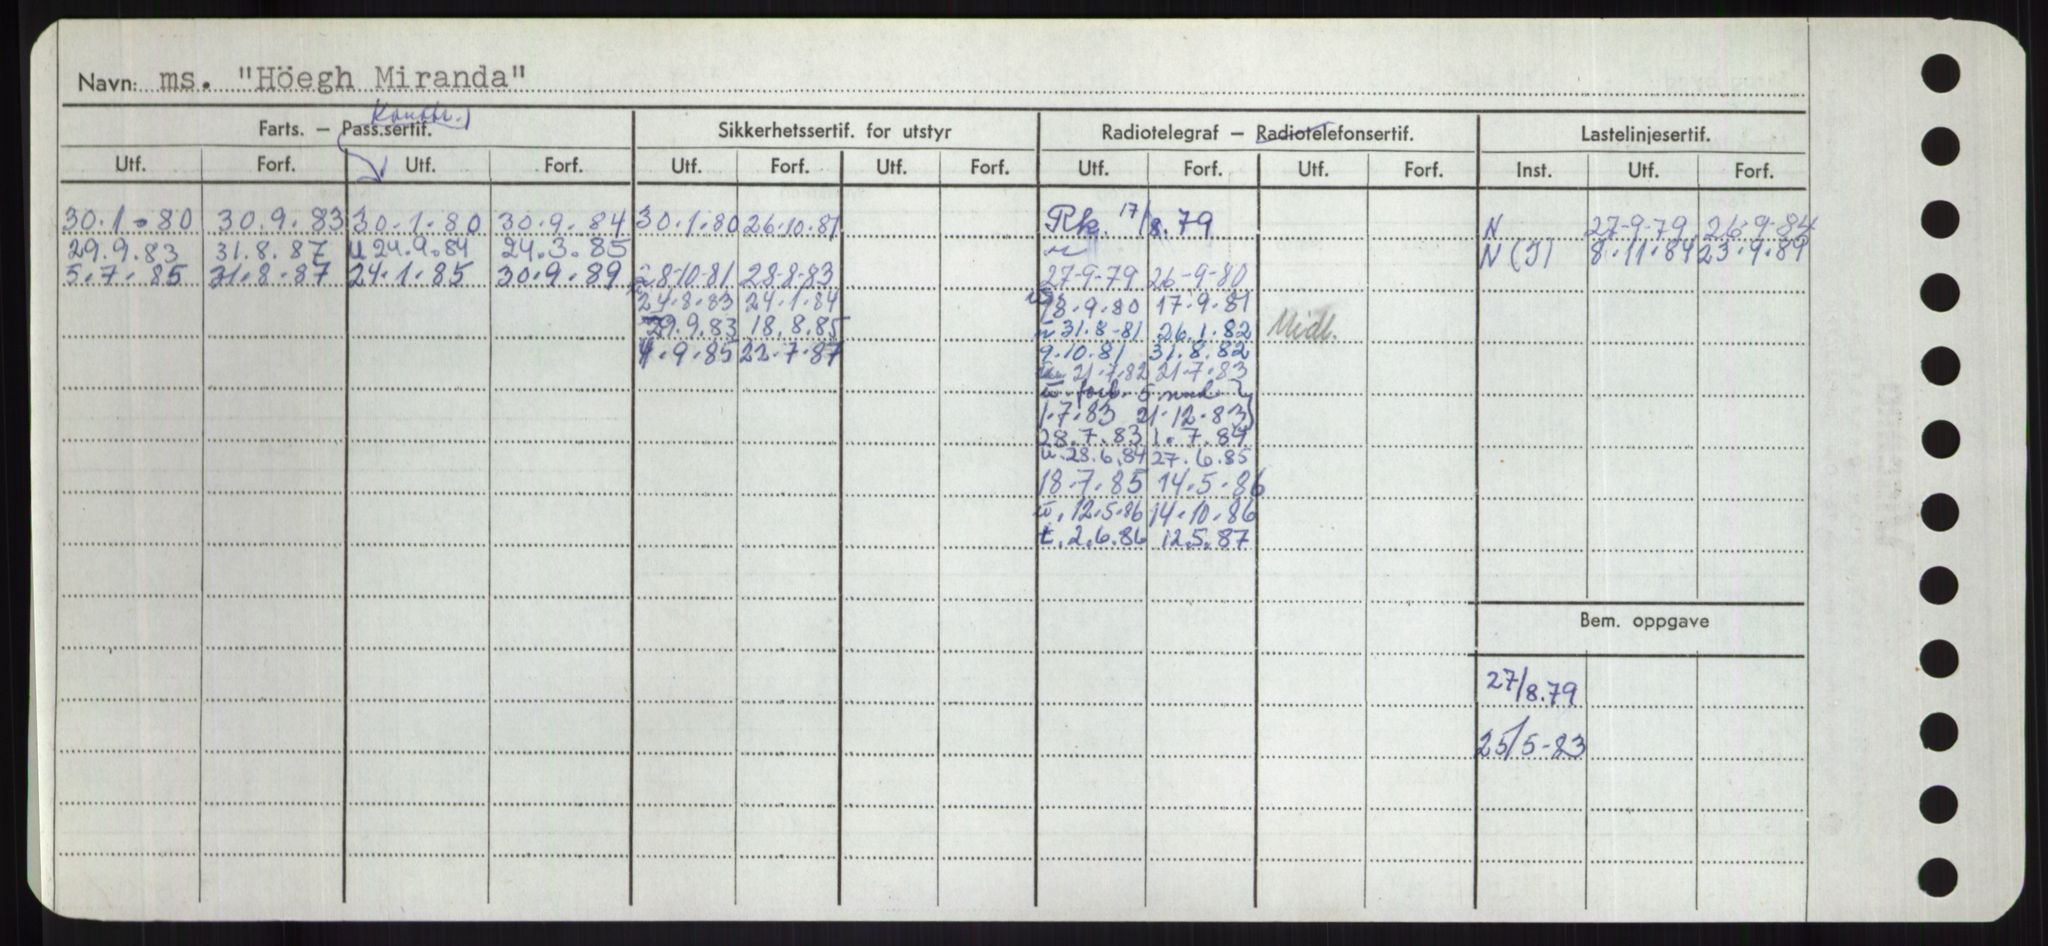 Navn: ms. "Höegh Miranda"
Konstr.
Farts. — Pass.sertif. Sikkerhetssertif. for utstyr Radiotelegraf — Radiotelefonsertif. Lastelinjesertif.
Utf. Forf. Utf. Forf. Utf. Forf. Utf. Forf. Utf. Forf. Utf. Forf. Inst. Utf. Forf.
30.1.80 30.9.83 30.1.80 30.9.84 30.1.80 26.10.81 Rk. 17/8.79 N 27-9-79 26-9-84
29.9.83 31.8.87 u 24.9.84 24.3.85 N (I) 8.11.84 23.9.89
5.7.85 31.8.87 24.1.85 30.9.89 28-10-81 28-8-83 27-9-79 26-9-80
24.8.83 24.1.84 18.9.80 17.9.81
29.9.83 18.8.85 31.8-81 26.1.82 Midl.
4.9.85 22.7.87 9.10.81 31.8.82
21.7.82 21.7.83
forl. 5 mnd
1.7.83 21.12.83
28.7.83 1.7.84
u.28.6.84 27.6.85
18.7.85 14.5.86
12.5.86 14.10.86
t. 2.6.86 12.5.87
Bem. oppgave
27/8.79
25/5-83